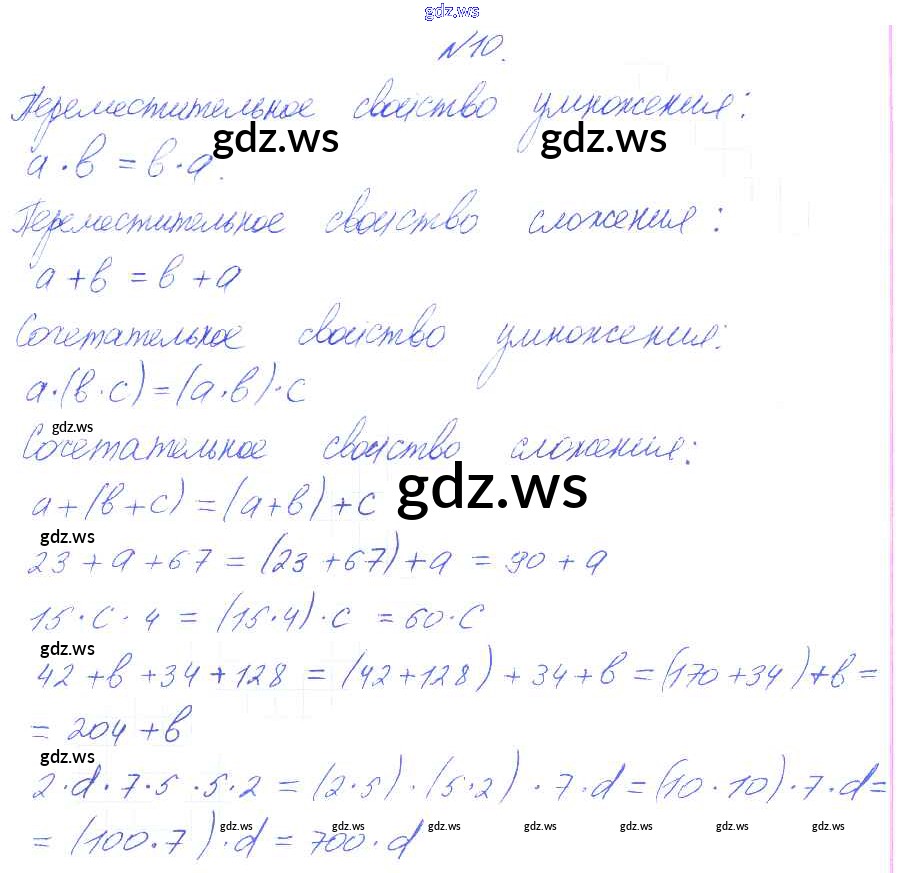 gdz.ws
№10.
Переместительное свойство умножения:
gdz.ws gdz.ws
a·b = b·a.
Переместительное свойство сложения:
a+b = b+a
Сочетательное свойство умножения:
a·(b·c)=(a·b)·c
gdz.ws
Сочетательное свойство сложения:
gdz.ws
a+(b+c)=(a+b)+c
gdz.ws
23+a+67 = (23+67)+a = 90+a
15·c·4 = (15·4)·c = 60·c
gdz.ws
42+b+34+128 = (42+128)+34+b = (170+34)+b =
= 204+b
gdz.ws
2·d·7·5·5·2 = (2·5)·(5·2)·7·d = (10·10)·7·d =
gdz.ws gdz.ws gdz.ws gdz.ws gdz.ws gdz.ws gdz.ws
= (100·7)·d = 700·d